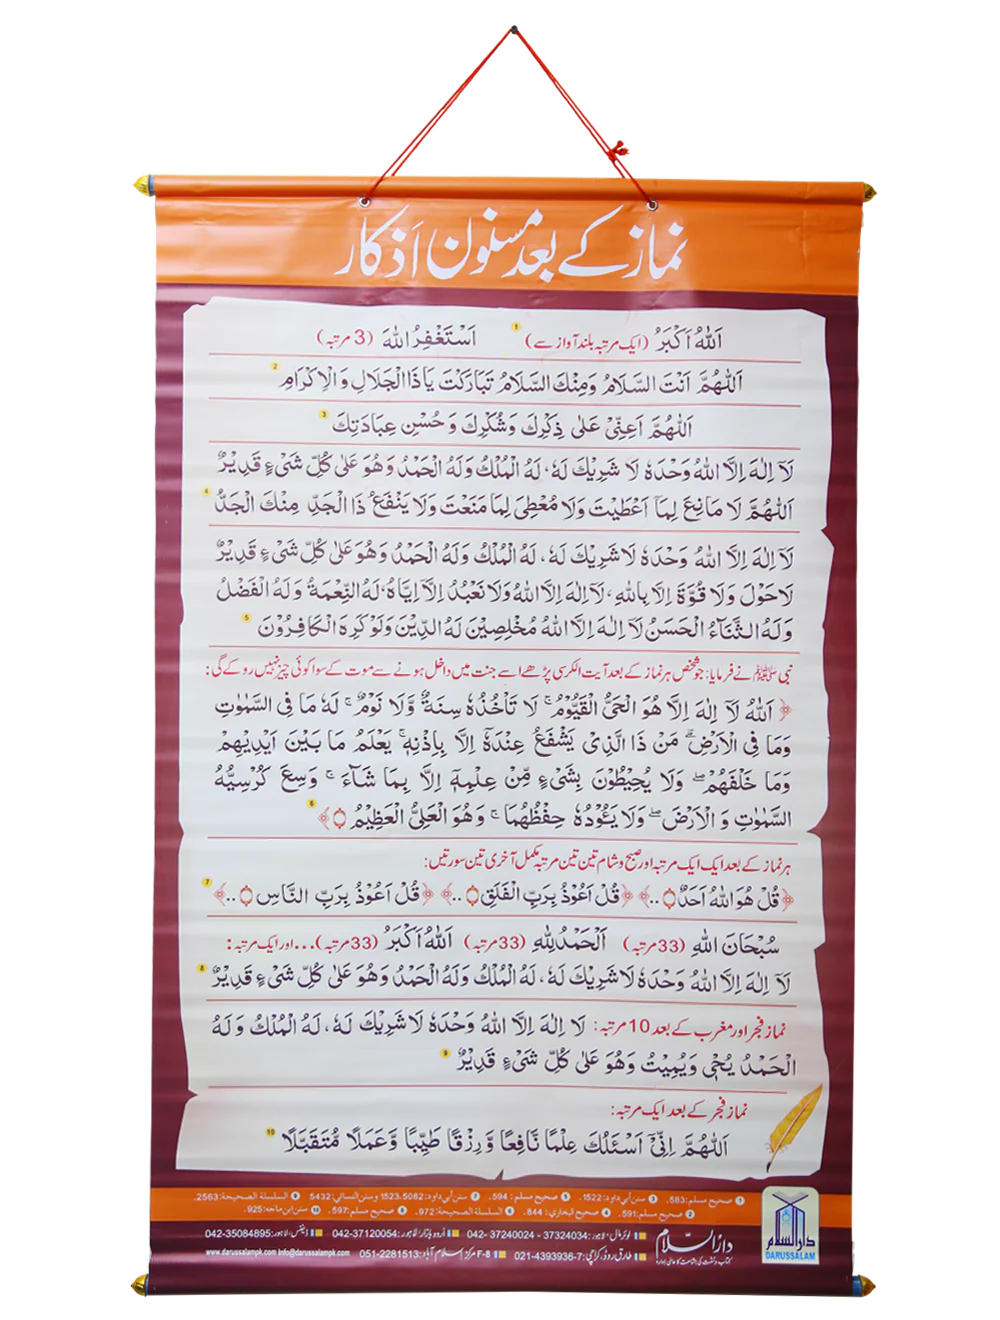 نماز کے بعد مسنون اَذکار
اَللّٰهُ اَكْبَرُ (ایک مرتبہ بلند آواز سے) 1 اَسْتَغْفِرُ اللّٰهَ (3 مرتبہ)
اَللّٰهُمَّ اَنْتَ السَّلَامُ وَمِنْكَ السَّلَامُ تَبَارَكْتَ يَاذَا الْجَلَالِ وَالْاِكْرَامِ 2
اَللّٰهُمَّ اَعِنِّىْ عَلٰى ذِكْرِكَ وَشُكْرِكَ وَحُسْنِ عِبَادَتِكَ 3
لَآ اِلٰهَ اِلَّا اللّٰهُ وَحْدَهٗ لَا شَرِيْكَ لَهٗ، لَهُ الْمُلْكُ وَلَهُ الْحَمْدُ وَهُوَ عَلٰى كُلِّ شَىْءٍ قَدِيْرٌ
اَللّٰهُمَّ لَا مَانِعَ لِمَآ اَعْطَيْتَ وَلَا مُعْطِىَ لِمَا مَنَعْتَ وَلَا يَنْفَعُ ذَا الْجَدِّ مِنْكَ الْجَدُّ 4
لَآ اِلٰهَ اِلَّا اللّٰهُ وَحْدَهٗ لَا شَرِيْكَ لَهٗ، لَهُ الْمُلْكُ وَلَهُ الْحَمْدُ وَهُوَ عَلٰى كُلِّ شَىْءٍ قَدِيْرٌ
لَا حَوْلَ وَلَا قُوَّةَ اِلَّا بِاللّٰهِ، لَآ اِلٰهَ اِلَّا اللّٰهُ وَلَا نَعْبُدُ اِلَّآ اِيَّاهُ، لَهُ النِّعْمَةُ وَلَهُ الْفَضْلُ
وَلَهُ الثَّنَآءُ الْحَسَنُ لَآ اِلٰهَ اِلَّا اللّٰهُ مُخْلِصِيْنَ لَهُ الدِّيْنَ وَلَوْ كَرِهَ الْكَافِرُوْنَ 5
نبی ﷺ نے فرمایا: جو شخص ہر نماز کے بعد آیت الکرسی پڑھے اسے جنت میں داخل ہونے سے موت کے سوا کوئی چیز نہیں روکے گی:
﴿ اَللّٰهُ لَآ اِلٰهَ اِلَّا هُوَ الْحَىُّ الْقَيُّوْمُ ۚ لَا تَاْخُذُهٗ سِنَةٌ وَّلَا نَوْمٌ ۚ لَهٗ مَا فِى السَّمٰوٰتِ
وَمَا فِى الْاَرْضِ ۗ مَنْ ذَا الَّذِىْ يَشْفَعُ عِنْدَهٗٓ اِلَّا بِاِذْنِهٖ ۚ يَعْلَمُ مَا بَيْنَ اَيْدِيْهِمْ
وَمَا خَلْفَهُمْ ۖ وَلَا يُحِيْطُوْنَ بِشَىْءٍ مِّنْ عِلْمِهٖٓ اِلَّا بِمَا شَآءَ ۚ وَسِعَ كُرْسِيُّهُ
السَّمٰوٰتِ وَ الْاَرْضَ ۖ وَلَا يَـُٔوْدُهٗ حِفْظُهُمَا ۚ وَهُوَ الْعَلِىُّ الْعَظِيْمُ ۝ ﴾ 6
ہر نماز کے بعد ایک ایک مرتبہ اور صبح و شام تین تین مرتبہ مکمل آخری تین سورتیں:
﴿ قُلْ هُوَ اللّٰهُ اَحَدٌ ۝ ..﴾ ﴿ قُلْ اَعُوْذُ بِرَبِّ الْفَلَقِ ۝ ..﴾ ﴿ قُلْ اَعُوْذُ بِرَبِّ النَّاسِ ۝ ..﴾ 7
سُبْحَانَ اللّٰهِ (33 مرتبہ) اَلْحَمْدُ لِلّٰهِ (33 مرتبہ) اَللّٰهُ اَكْبَرُ (33 مرتبہ)... اور ایک مرتبہ:
لَآ اِلٰهَ اِلَّا اللّٰهُ وَحْدَهٗ لَا شَرِيْكَ لَهٗ، لَهُ الْمُلْكُ وَلَهُ الْحَمْدُ وَهُوَ عَلٰى كُلِّ شَىْءٍ قَدِيْرٌ 8
نماز فجر اور مغرب کے بعد 10 مرتبہ: لَا اِلٰهَ اِلَّا اللّٰهُ وَحْدَهٗ لَا شَرِيْكَ لَهٗ، لَهُ الْمُلْكُ وَلَهُ
الْحَمْدُ يُحْىٖ وَيُمِيْتُ وَهُوَ عَلٰى كُلِّ شَىْءٍ قَدِيْرٌ 9
نماز فجر کے بعد ایک مرتبہ:
اَللّٰهُمَّ اِنِّىْٓ اَسْئَلُكَ عِلْمًا نَّافِعًا وَّرِزْقًا طَيِّبًا وَّعَمَلًا مُّتَقَبَّلًا 10
1 صحيح مسلم: 583. 3 سنن أبي داود: 1522. 5 صحيح مسلم: 594. 7 سنن أبي داود: 1523،5082 وسنن النسائي: 5432 9 السلسلة الصحيحة: 2563.
2 صحيح مسلم: 591. 4 صحيح البخاري: 844. 6 السلسلة الصحيحة: 972. 8 صحيح مسلم: 597. 10 سنن ابن ماجه: 925.
دارالسلام
کتاب و سنت کی اشاعت کا عالمی ادارہ
لوئر مال، لاہور: 042- 37240024 - 37324034 اُردو بازار، لاہور: 042-37120054 ڈیفنس، لاہور: 042-35084895
طارق روڈ، کراچی: 021-4393936-7 F-8 مرکز اسلام آباد: 051-2281513 www.darussalampk.com info@darussalampk.com
دارالسلام
DARUSSALAM